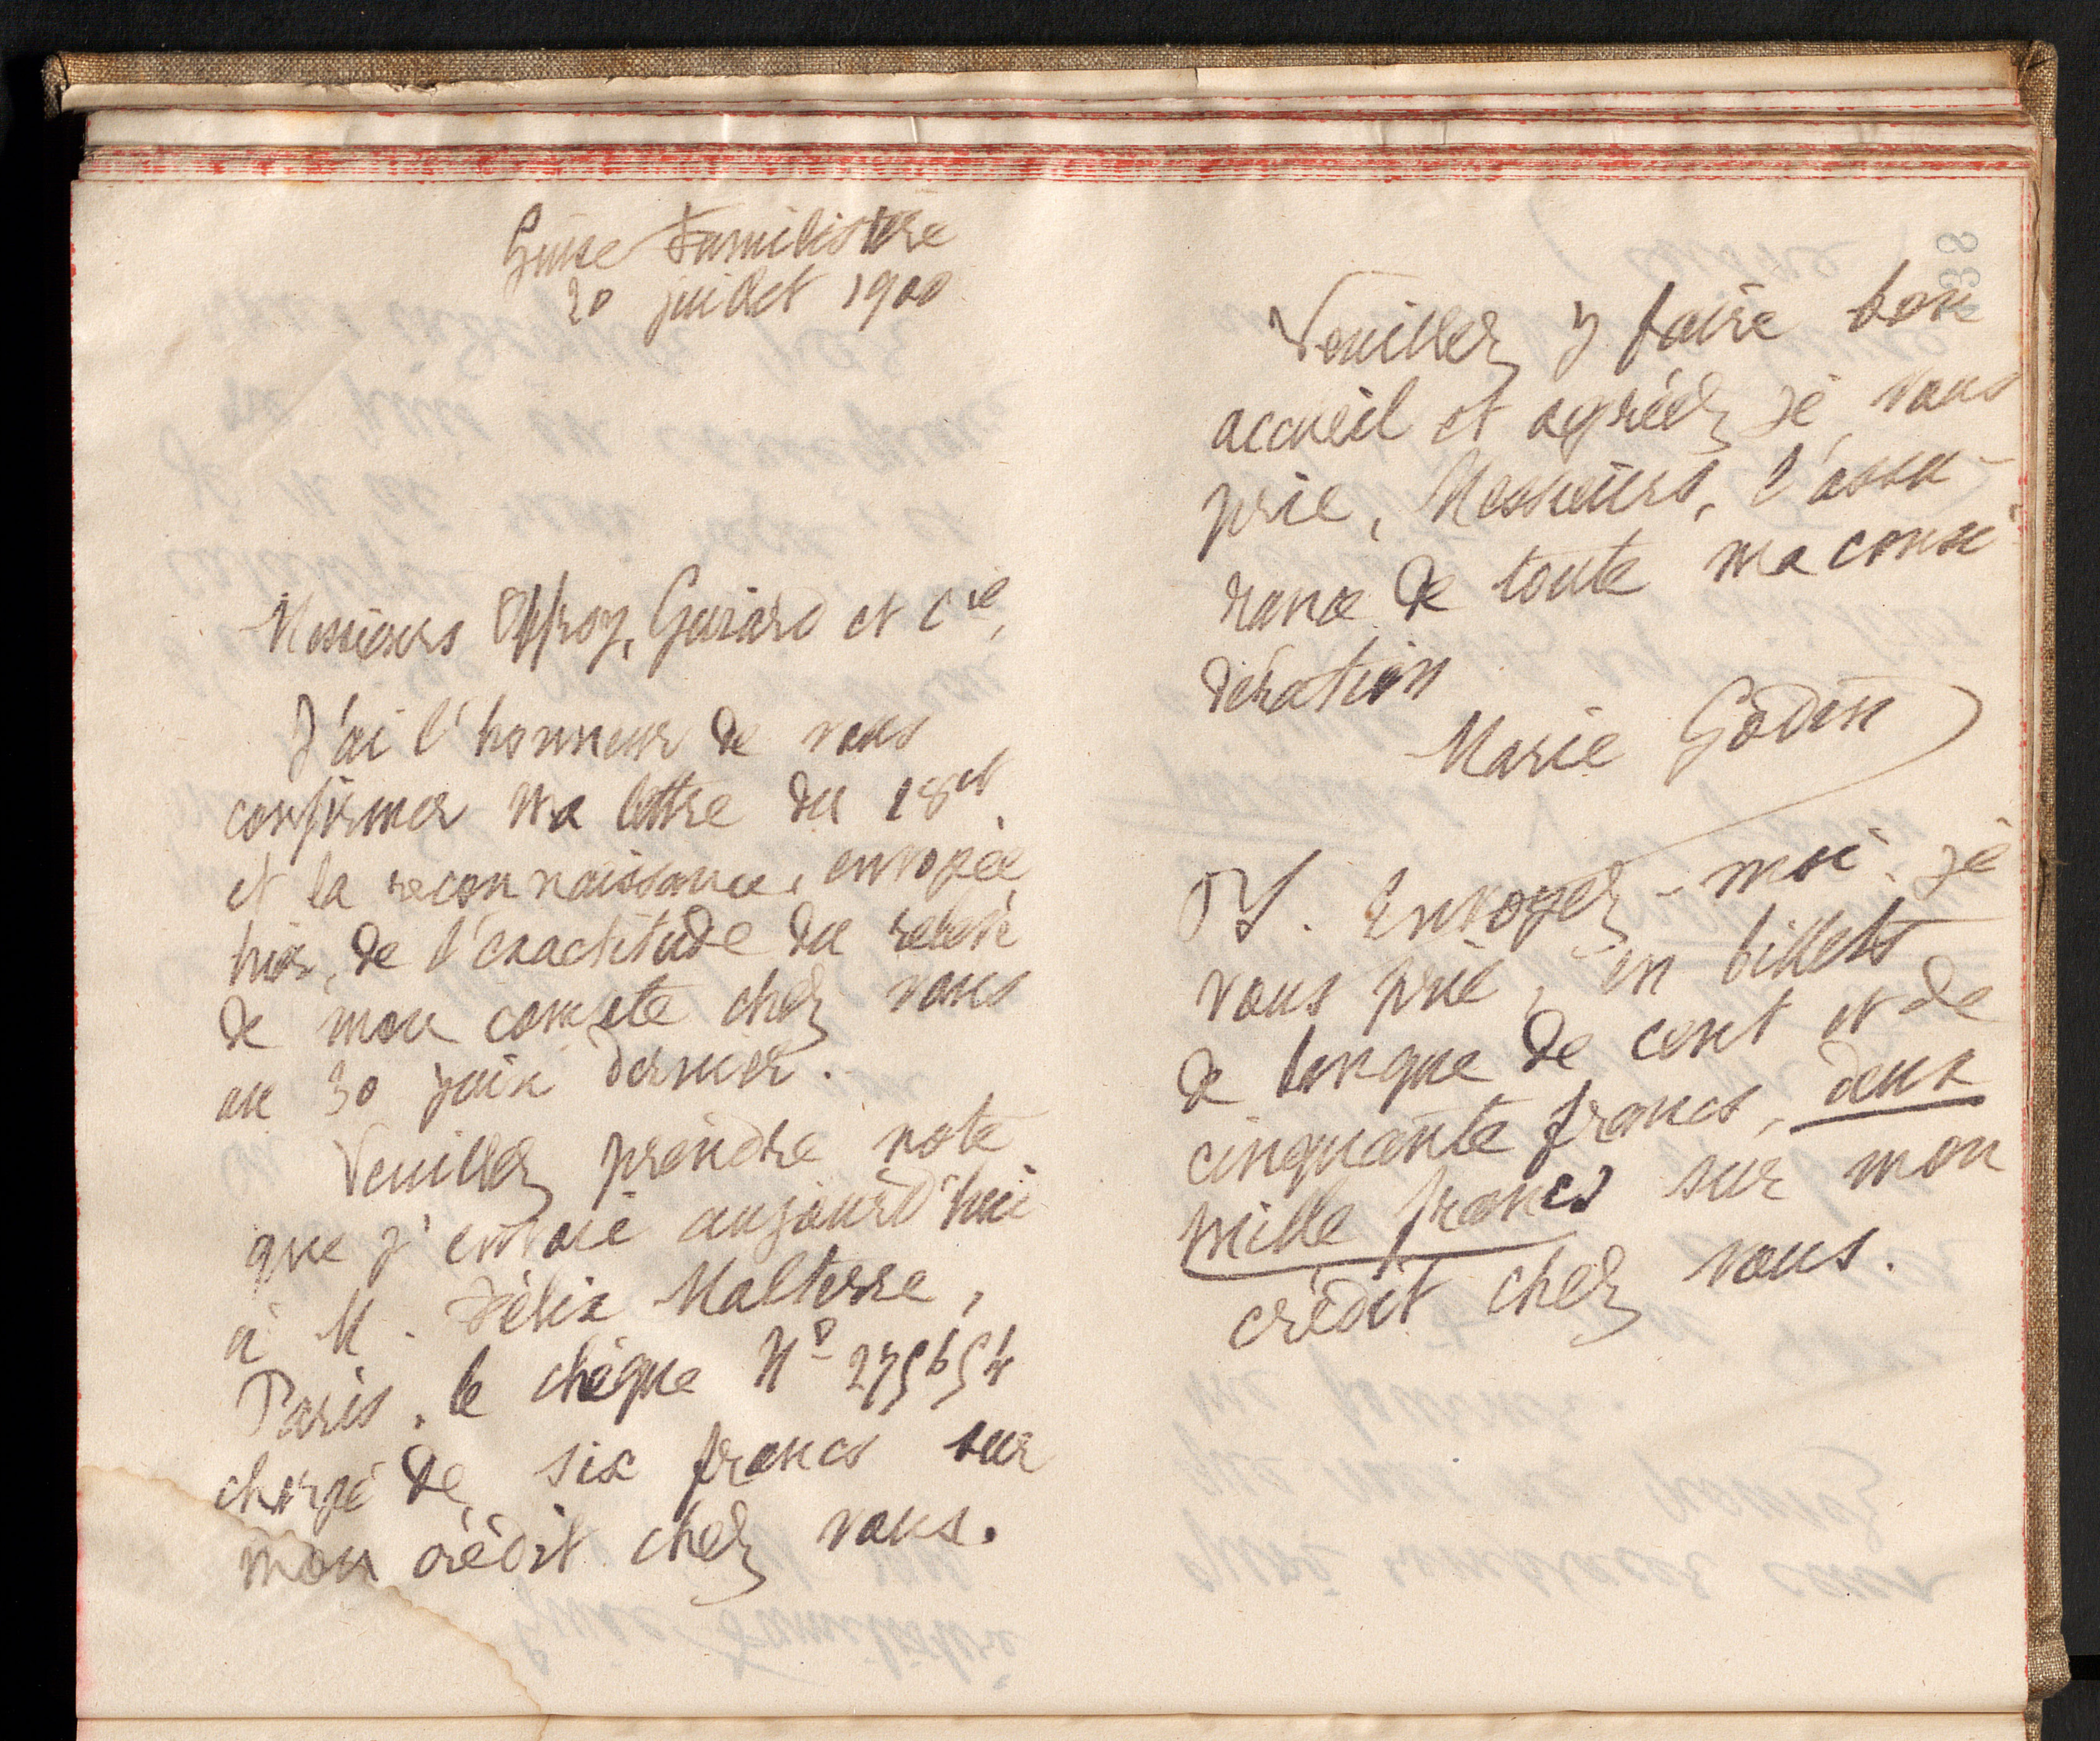 Guise Familistère
20 juillet 1900
Messieurs Offroy, Guiard et Cie,
J'ai l'honneur de vous
confirmer ma lettre du 18 ct
et la reconnaissance, envoyée
hier, de l'exactitude du relevé
de mon compte chez vous
au 30 juin dernier.
Veuillez prendre note
que j'envoie aujourd'hui
à M. Félix Malterre,
Paris, le chèque No 275654
chargé de six francs sur
mon crédit chez vous.
Veuillez y faire bon
accueil et agréez, je vous
prie, Messieurs, l'assu-
rance de toute ma consi-
dération
Marie Godin
PS. Envoyez-moi, je
vous prie, en billets
de banque de cent et de
cinquante francs, deux
mille francs sur mon
crédit chez vous.